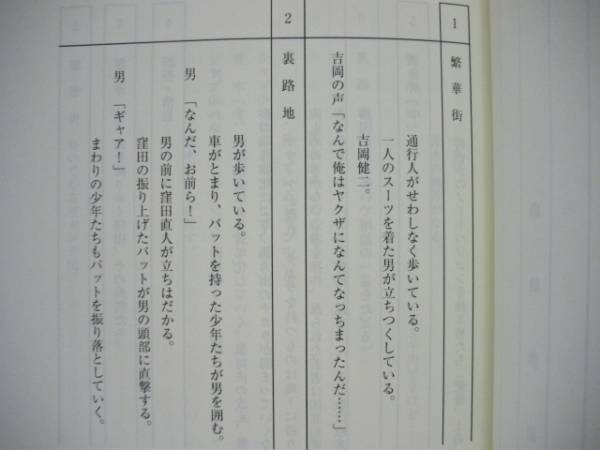 1 繁華街
通行人がせわしなく歩いている。
一人のスーツを着た男が立ちつくしている。
吉岡健二。
吉岡の声「なんで俺はヤクザになんてなっちまったんだ……」
2 裏路地
男が歩いている。
車がとまり、バットを持った少年たちが男を囲む。
男 「なんだ、お前ら！」
男の前に窪田直人が立ちはだかる。
窪田の振り上げたバットが男の頭部に直撃する。
男 「ギャア！」
まわりの少年たちもバットを振り落としていく。